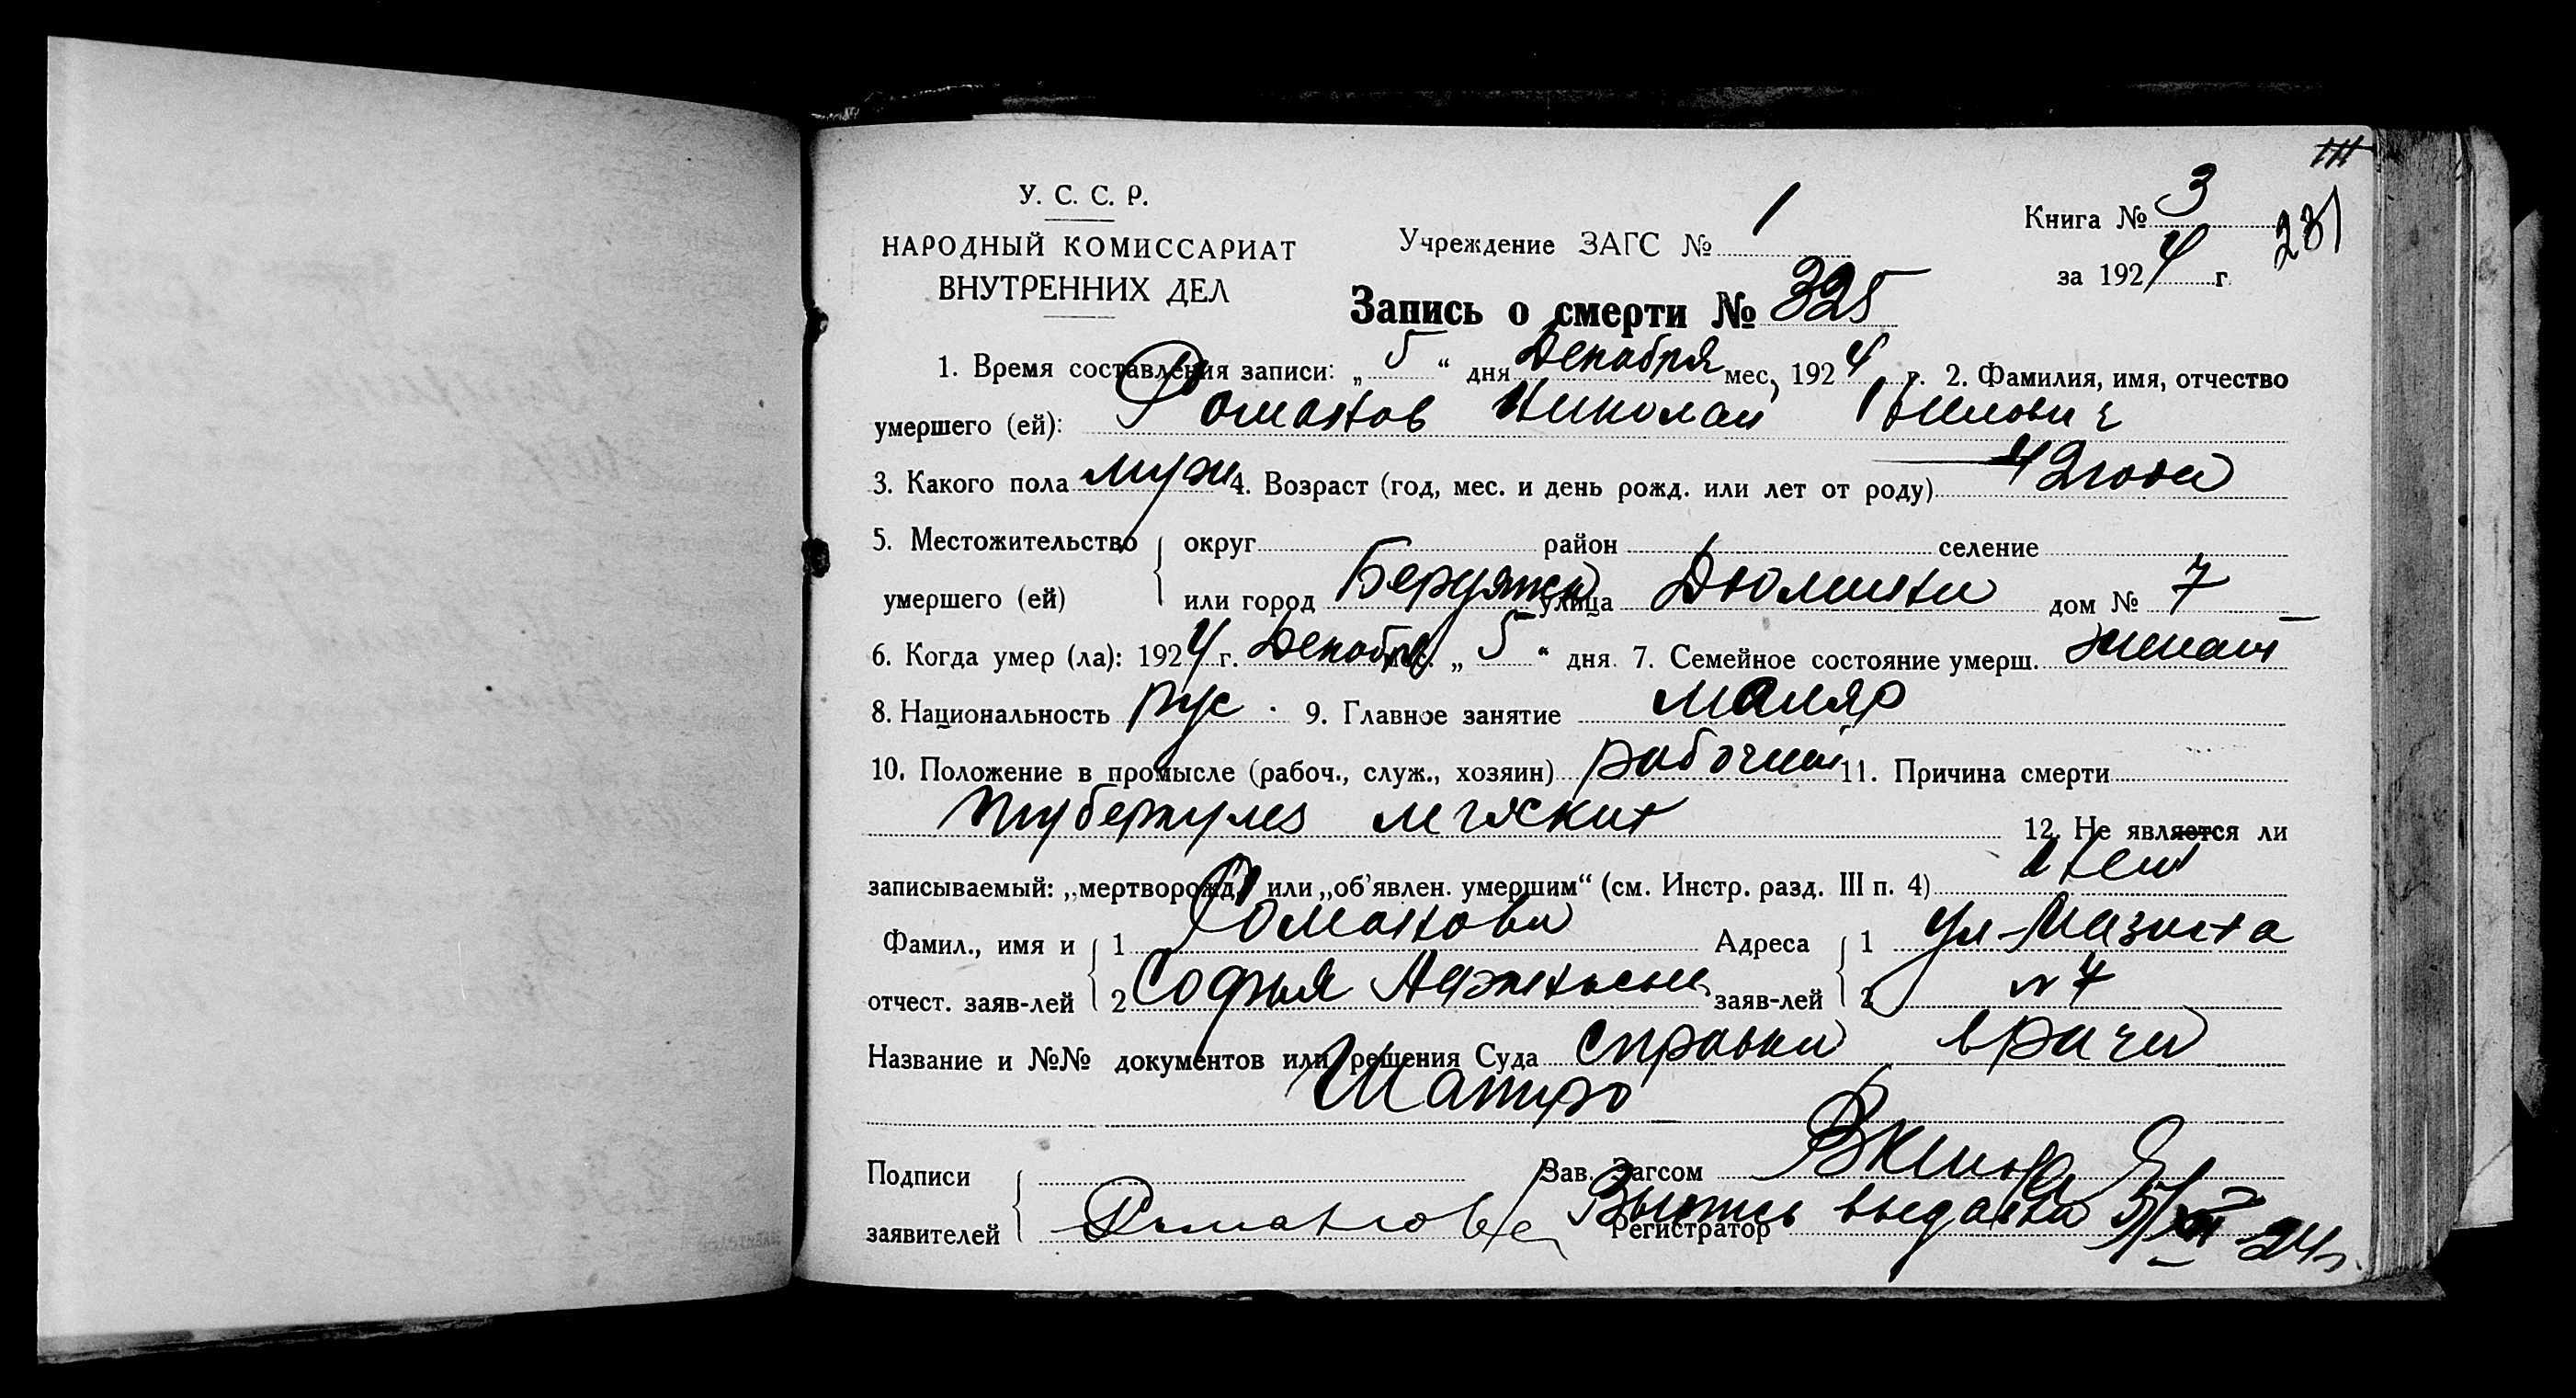 111
231
У. С. С. Р.
НАРОДНЫЙ КОМИССАРИАТ
ВНУТРЕННИХ ДЕЛ
Учреждение ЗАГС № 1
Книга № 3
за 1924 г.
Запись о смерти № 325
1. Время составления записи: „ 5 “ дня Декабря мес, 1924 г. 2. Фамилия, имя, отчество
умершего (ей): Романов Николай
3. Какого пола муж 4. Возраст (год, мес. и день рожд. или лет от роду) 42 года
5. Местожительство округ район селение
умершего (ей) или город Бердянск улица Дюмина дом № 7
6. Когда умер (ла): 1924 г. Декабря мес. „ 5 “ дня. 7. Семейное состояние умерш. женат
8. Национальность рус. 9. Главное занятие маляр
10. Положение в промысле (рабоч., служ., хозяин) рабочий 11. Причина смерти
туберкулез легких
12. Не является ли
записываемый: „мертворожд.“ или „об’явлен. умершим“ (см. Инстр. разд. III п. 4) нет
Фамил., имя и 1 Романова Адреса 1 ул-Мазина
отчест. заяв-лей 2 Софья заяв-лей 2 № 7
Название и №№ документов или решения Суда справка врача
Шапиро
Подписи Зав. Загсом
заявителей Романова Регистратор
Выпись выдана 5/XII 24г.